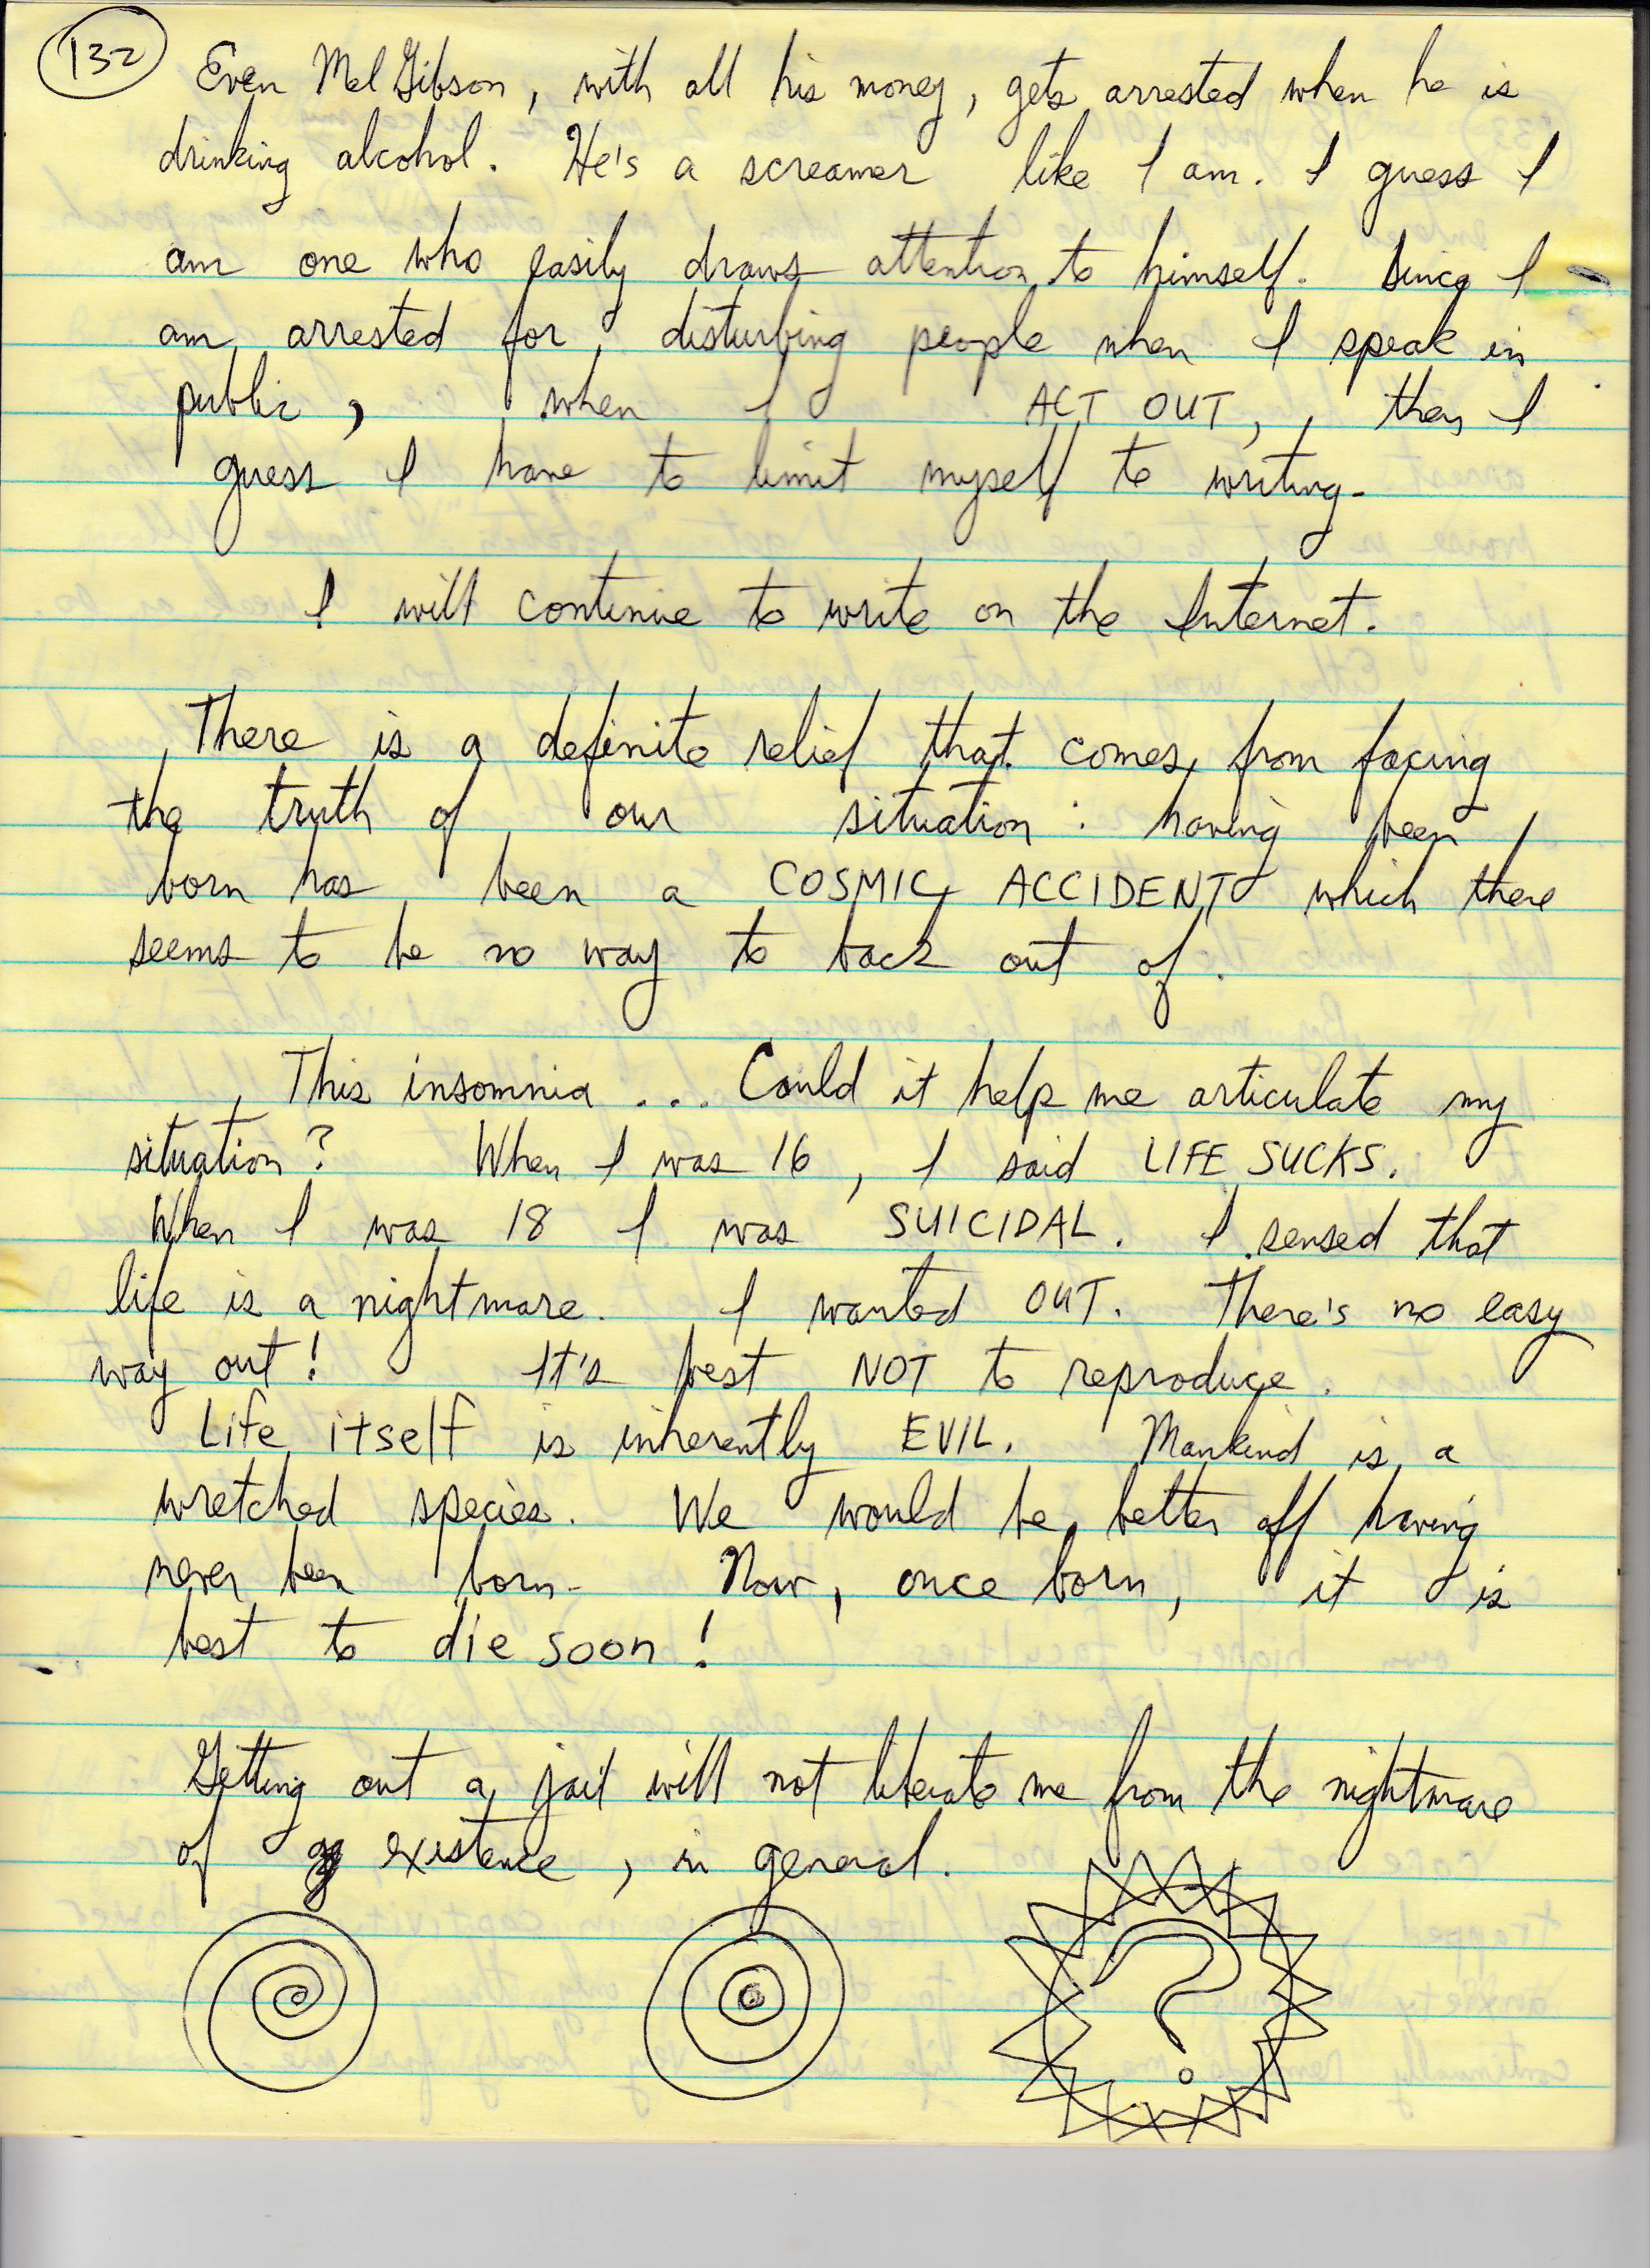 132
Even Mel Gibson, with all his money, gets arrested when he is
drinking alcohol. He's a screamer like I am. I guess I
am one who easily draws attention to himself. Since I
am arrested for disturbing people when I speak in
public, when I ACT OUT, then I
guess I have to limit myself to writing.
I will continue to write on the Internet.
There is a definite relief that comes from facing
the truth of our situation: having been
born has been a COSMIC ACCIDENT which there
seems to be no way to back out of.
This insomnia ... Could it help me articulate my
situation? When I was 16, I said LIFE SUCKS.
When I was 18 I was SUICIDAL. I sensed that
life is a nightmare. I wanted OUT. There's no easy
way out! It's best NOT to reproduce.
Life itself is inherently EVIL. Mankind is a
wretched species. We would be better off having
never been born. Now, once born, it is
best to die soon!
Getting out a jail will not liberate me from the nightmare
of existence, in general.
?